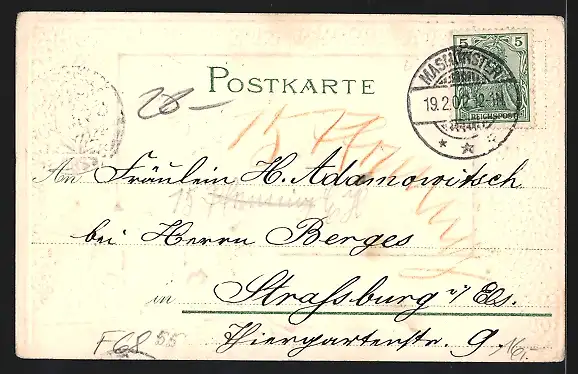 POSTKARTE
5 5
MASMÜNSTER
19.2.02 12-1N
REICHSPOST
28-
An Fräulein H. Adamowitsch
bei Herrn Berges
in Strassburg i/ Els.
Thiergartenstr. 9.
F68 55
16/-